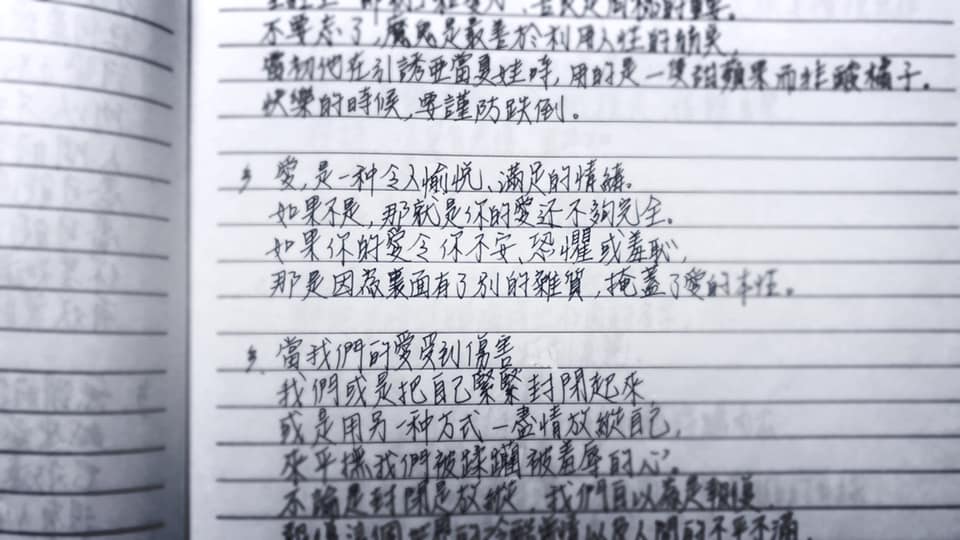 不要忘了,魔鬼是最善於利用人性的
當初他在引誘亞當夏娃時,用的是一隻甜蘋果而非酸橘子。
快樂的時候,要謹防跌倒。
愛,是一种令人愉悅、滿足的情緒。
如果不是,那就是你的愛还不夠完全。
如果你的愛令你不安、恐懼或羞恥,
那是因為裏面有了別的雜質,掩蓋了愛的本性。
當我們的愛受到傷害
我們或是把自己緊緊封閉起來,
或是用另一种方式—盡情放縱自己,
來平撫我們被蹂躪被羞辱的心。
不論是封閉是放縱,我們自以為是報復